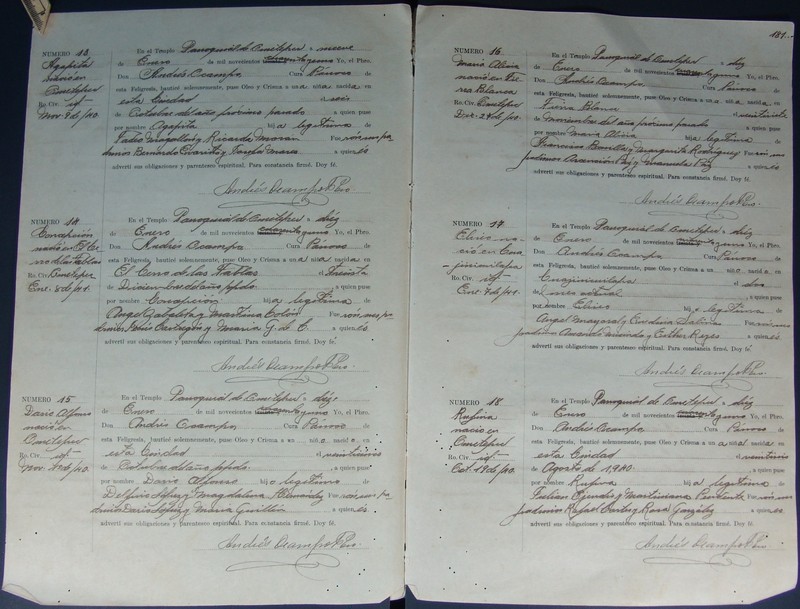 NUMERO 13
Agapita
nació en
Ometepec
Ro. Civ. id.
Nov. 9 de/40.
En el Templo Parroquial de Ometepec a nueve
de Enero de mil novecientos cuarenta y uno Yo, el Pbro.
Don Andrés Ocampo Cura Párroco de
esta Feligresía, bauticé solemnemente, puse Oleo y Crisma a una niña nacida en
esta Ciudad el seis
de Octubre del año próximo pasado a quien puse
por nombre Agapita hija legítima de
y Ricarda Fueron sus pa
drinos Bernardo y a quienes
advertí sus obligaciones y parentesco espiritual. Para constancia firmé. Doy fé.
Andrés Ocampo Pbro
NUMERO 14
Concepción
nació en El Ce
rro de las Tablas
Ro. Civ. Ometepec
Ene. 8 de/41.
En el Templo Parroquial de Ometepec a diez
de Enero de mil novecientos cuarenta y uno Yo, el Pbro.
Don Andrés Ocampo Cura Párroco de
esta Feligresía, bauticé solemnemente, puse Oleo y Crisma a una niña nacida en
El Cerro de las Tablas el treinta
de Diciembre del año ppdo. a quien puse
por nombre Concepción hija legítima de
Angel y Martina Colón Fueron sus pa
drinos y María G. de C. a quienes
advertí sus obligaciones y parentesco espiritual. Para constancia firmé. Doy fé.
Andrés Ocampo Pbro.
NUMERO 15
Darío Alfonso
nació en
Ometepec
Ro. Civ. id.
Nov. de/40.
En el Templo Parroquial de Ometepec a diez
de Enero de mil novecientos cuarenta y uno Yo, el Pbro.
Don Andrés Ocampo Cura Párroco de
esta Feligresía, bauticé solemnemente, puse Oleo y Crisma a un niño nacido en
esta Ciudad el veintiunos
de Octubre del año ppdo. a quien puse
por nombre Darío Alfonso hijo legítimo de
Delfino López y Magdalena Hernández Fueron sus pa
drinos Darío López y María Guillén a quienes
advertí sus obligaciones y parentesco espiritual. Para constancia firmé. Doy fé.
Andrés Ocampo Pbro
181
NUMERO 16
María Alivia
nació en Tie
rra Blanca
Ro. Civ. Ometepec
Dic. 24 de/40.
En el Templo Parroquial de Ometepec a diez
de Enero de mil novecientos cuarenta y uno Yo, el Pbro.
Don Andrés Ocampo Cura Párroco de
esta Feligresía, bauticé solemnemente, puse Oleo y Crisma a una niña nacida en
Tierra Blanca el veintisiete
de Noviembre del año próximo pasado a quien puse
por nombre María Alivia hija legítima de
Francisco Bonilla y Margarita Rodríguez Fueron sus
padrinos Ascensión Paz y Manuela Paz a quienes
advertí sus obligaciones y parentesco espiritual. Para constancia firmé. Doy fé.
Andrés Ocampo Pbro.
NUMERO 17
Eliseo na-
ció en Cua
jinicuilapa
Ro. Civ. id.
Ene. 7 de/41.
En el Templo Parroquial de Ometepec a diez
de Enero de mil novecientos cuarenta y uno Yo, el Pbro.
Don Andrés Ocampo Cura Párroco de
esta Feligresía, bauticé solemnemente, puse Oleo y Crisma a un niño nacido en
Cuajinicuilapa el dos
del mes actual a quien puse
por nombre Eliseo hijo legítimo de
Angel Mayoral y Eudina Salinas Fueron sus
padrinos y Esther Reyes a quienes
advertí sus obligaciones y parentesco espiritual. Para constancia firmé. Doy fé.
Andrés Ocampo Pbro.
NUMERO 18
Rufina
nació en
Ometepec
Ro. Civ. id.
Oct. 19 de/40.
En el Templo Parroquial de Ometepec a diez
de Enero de mil novecientos cuarenta y uno Yo, el Pbro.
Don Andrés Ocampo Cura Párroco de
esta Feligresía, bauticé solemnemente, puse Oleo y Crisma a una niña nacida en
esta Ciudad el veintiuno
de Agosto de 1,940. a quien puse
por nombre Rufina hija legítima de
Julian y Martiniana Fueron sus
padrinos Rafael y Rosa González a quienes
advertí sus obligaciones y parentesco espiritual. Para constancia firmé. Doy fé.
Andrés Ocampo Pbro